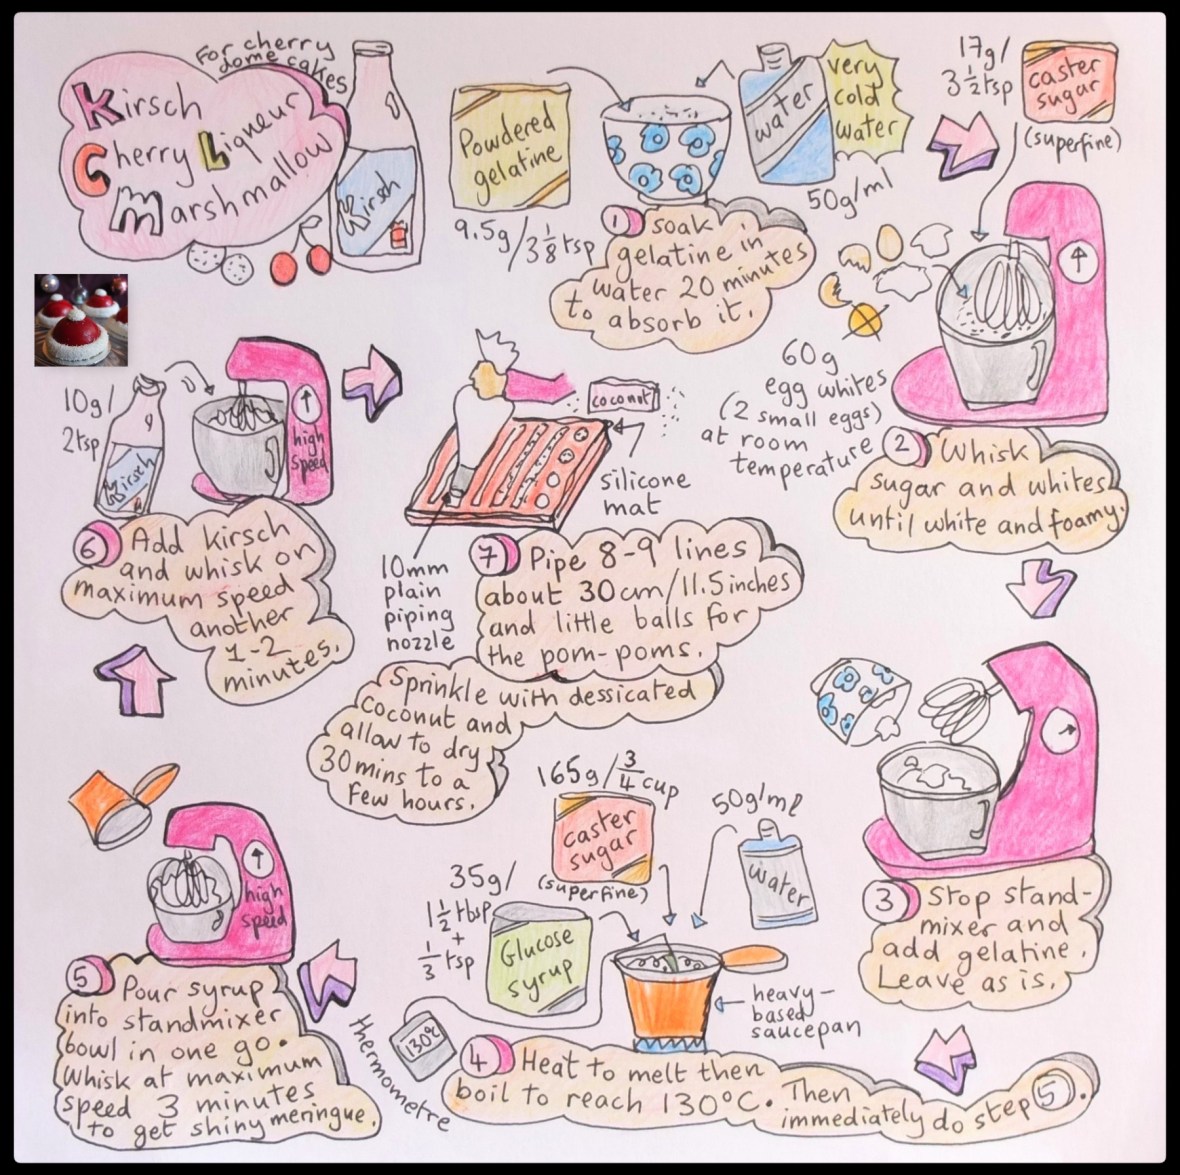 For cherry
dome cakes
Kirsch
Cherry Liqueur
Marshmallow
Kirsch
Powdered
gelatine
9.5g/3 1/8 tsp
water
very
cold
water
50g/ml
1 soak
gelatine in
water 20 minutes
to absorb it.
17g/
3 1/2 tsp
caster
sugar
(superfine)
60g
egg whites
(2 small eggs)
at room
temperature
2 Whisk
sugar and whites
until white and foamy.
3 Stop stand-
mixer and
add gelatine.
Leave as is.
165g/3/4 cup
caster
sugar
(superfine)
50g/ml
water
35g/
1 1/2 tbsp
+
1/3 tsp
Glucose
syrup
heavy-
based
saucepan
130°C
thermometre
4 Heat to melt then
boil to reach 130°C. Then
immediately do step 5.
high
speed
5 Pour syrup
into standmixer
bowl in one go.
Whisk at maximum
speed 3 minutes
to get shiny meringue.
10g/
2tsp
Kirsch
high
speed
6 Add kirsch
and whisk on
maximum speed
another
1-2
minutes.
coconut
silicone
mat
10mm
plain
piping
nozzle
7 Pipe 8-9 lines
about 30cm/11.5inches
and little balls for
the pom-poms.
Sprinkle with dessicated
coconut and
allow to dry
30 mins to a
few hours.